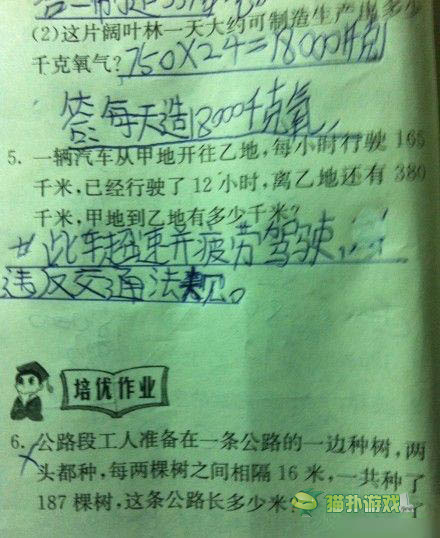 (2)这片阔叶林一天大约可制造生产出多少
千克氧气?750×24=18000千克
答每天造18000千克氧
5. 一辆汽车从甲地开往乙地,每小时行驶 165
千米,已经行驶了 12 小时,离乙地还有 380
千米,甲地到乙地有多少千米?
此车超速并疲劳驾驶
违反交通法规。
培优作业
6. 公路段工人准备在一条公路的一边种树,两
头都种,每两棵树之间相隔 16 米,一共种了
187 棵树,这条公路长多少米?
猫扑游戏